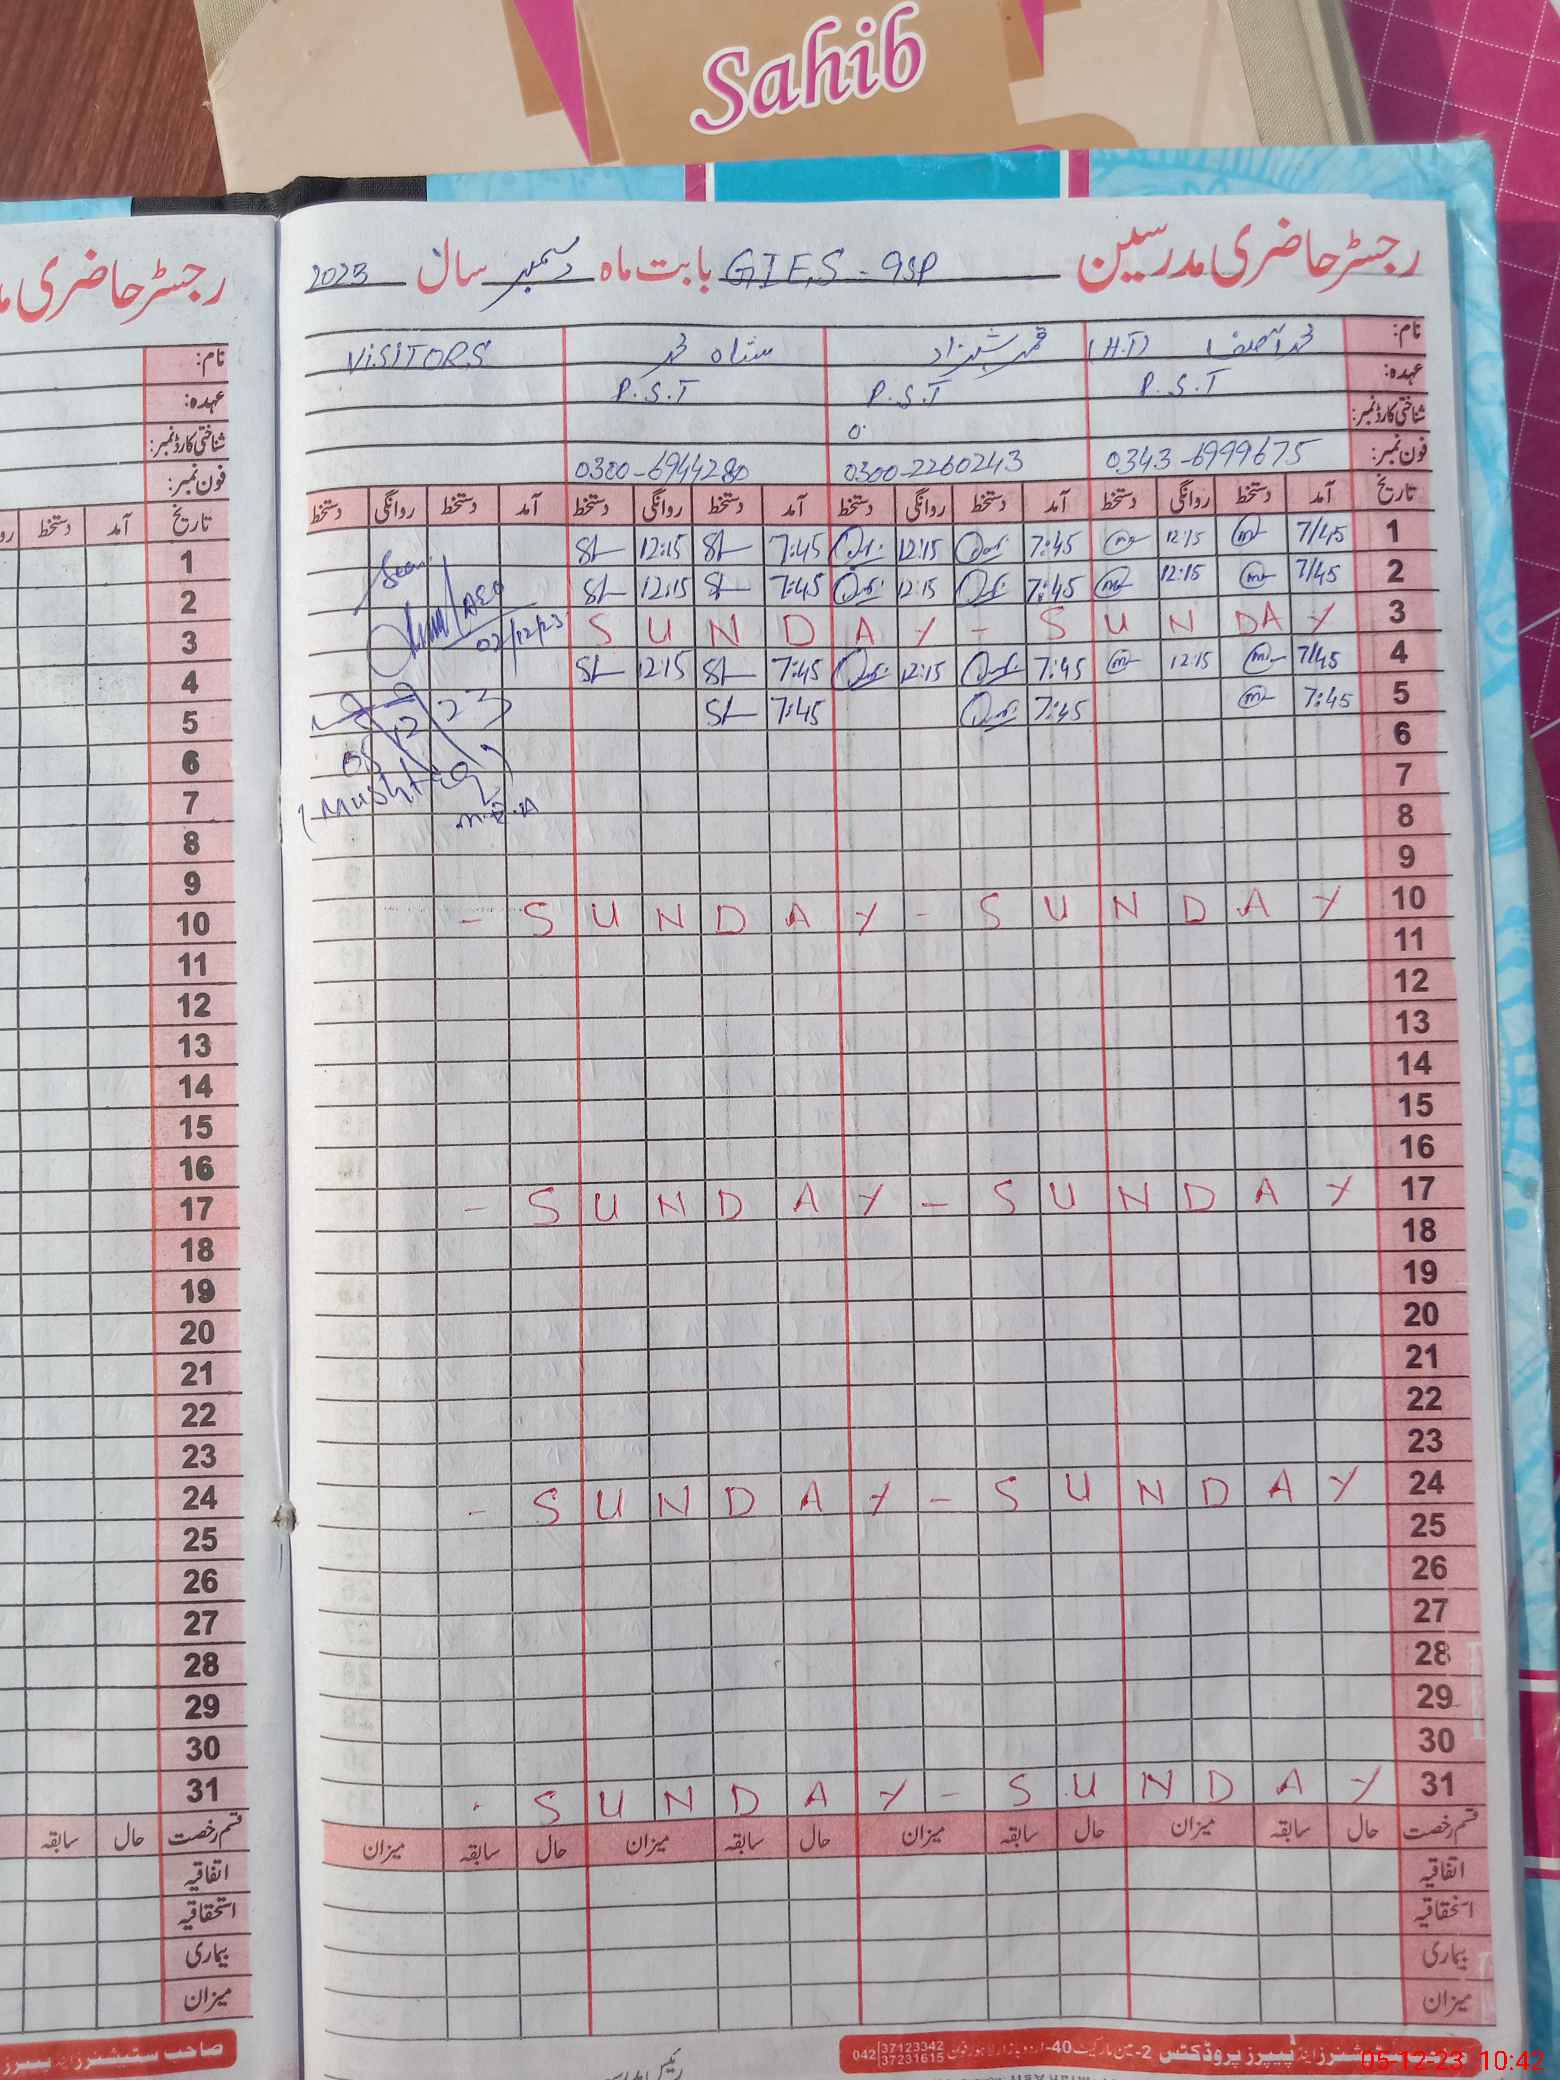 Sahib
رجسٹر حاضری مدرسین GIES - 9SP بابت ماہ دسمبر سال 2023
نام: محمد آصف (H.T) قمر شہزاد شاہ محمد VISITORS
عہدہ: P.S.T P.S.T P.S.T
شناختی کارڈ نمبر: 0
فون نمبر: 0343-6999675 0300-2260243 0300-6944280
تاریخ آمد دستخط روانگی دستخط آمد دستخط روانگی دستخط آمد دستخط روانگی دستخط آمد دستخط روانگی دستخط
1 7/45 12:15 7:45 12:15 7:45 12:15 Seen
2 7/45 12:15 7:45 12:15 7:45 12:15 AEO
3 SUNDAY - SUNDAY 02/12/23
4 7/45 12:15 7:45 12:15 7:45 12:15
5 7:45 7:45 7:45
6 05 12 23
7 (Mushtaq)
8 M.E.A
9
10 - SUNDAY - SUNDAY
11
12
13
14
15
16
17 - SUNDAY - SUNDAY
18
19
20
21
22
23
24 - SUNDAY - SUNDAY
25
26
27
28
29
30
31 - SUNDAY - SUNDAY
قسم رخصت حال سابقہ میزان حال سابقہ میزان حال سابقہ میزان حال سابقہ میزان
اتفاقیہ
استحقاقیہ
بیماری
میزان
پیپرز پروڈکٹس 2-مین مارکیٹ 40-اردو بازار لاہور فون 042 37123342 37231615
رجسٹر حاضری
نام:
عہدہ:
شناختی کارڈ نمبر:
فون نمبر:
تاریخ آمد دستخط
1
2
3
4
5
6
7
8
9
10
11
12
13
14
15
16
17
18
19
20
21
22
23
24
25
26
27
28
29
30
31
قسم رخصت حال سابقہ
اتفاقیہ
استحقاقیہ
بیماری
میزان
صاحب سٹیشنرز اینڈ پیپرز
05-12-23 10:42